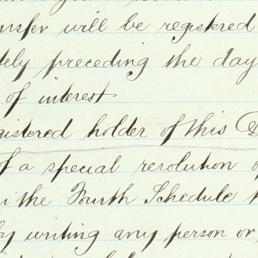 nsfer will be registered
tely preceding the day
of interest
gistered holder of this
of a special resolution
in the Fourth Schedule
by writing any person or